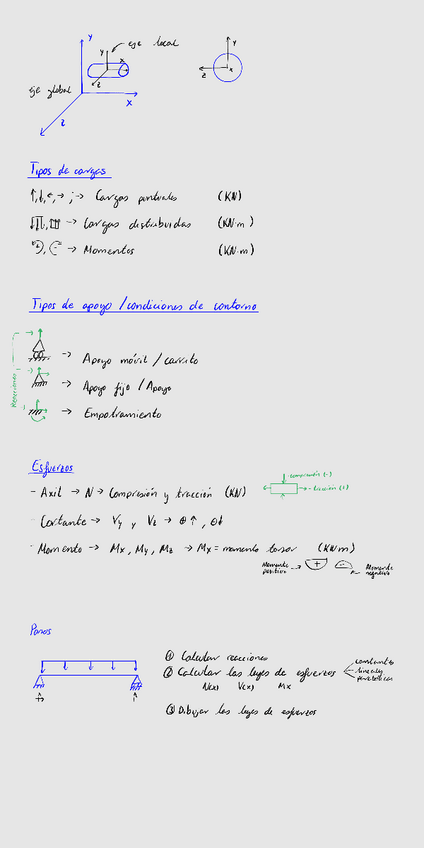 y
eje local
y
x
z
eje global
x
z
y
z
x
Tipos de cargas
↑,↓,←,→ ; → Cargas puntuales (KN)
→ Cargas distribuidas (KN·m)
→ Momentos (KN·m)
Tipos de apoyo / condiciones de contorno
Reacciones
→ Apoyo móvil / carrito
→ Apoyo fijo / Apoyo
→ Empotramiento
Esfuerzos
- Axil → N → Compresión y tracción (KN)
compresión (-)
tracción (+)
- Cortante → Vy y Vz → ⊕↑, ⊖↓
- Momento → Mx, My, Mz → Mx = momento torsor (KN·m)
Momento positivo → +
- Momento negativo
Pasos
① Calcular reacciones
② Calcular las leyes de esfuerzos
constantes
lineales
parabólicas
N(x) V(x) Mx
③ Dibujar las leyes de esfuerzos